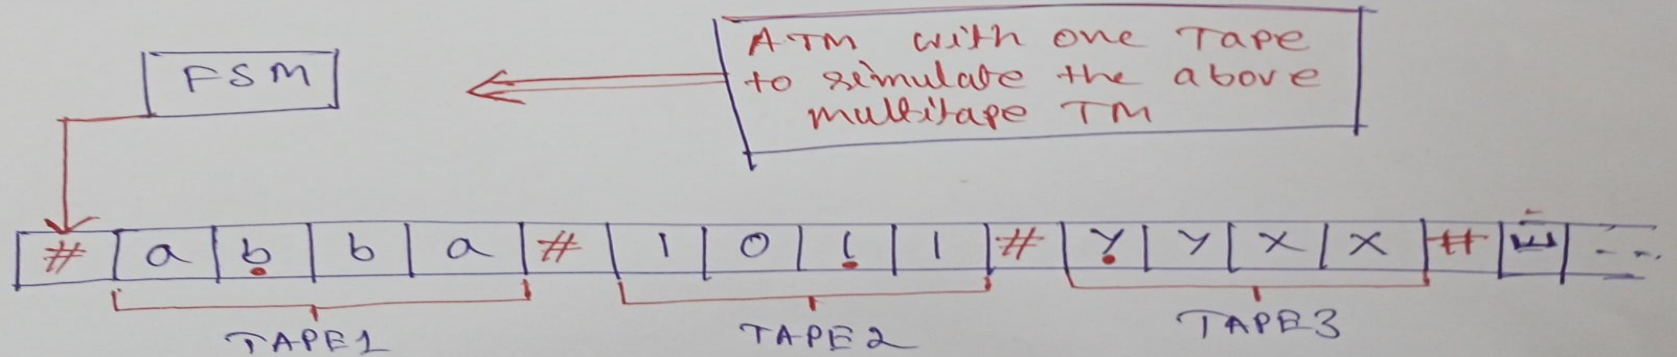 FSM
A TM with one Tape
to simulate the above
multitape TM
# a b b a # 1 0 1 1 # y y x x #
TAPE1 TAPE2 TAPE3